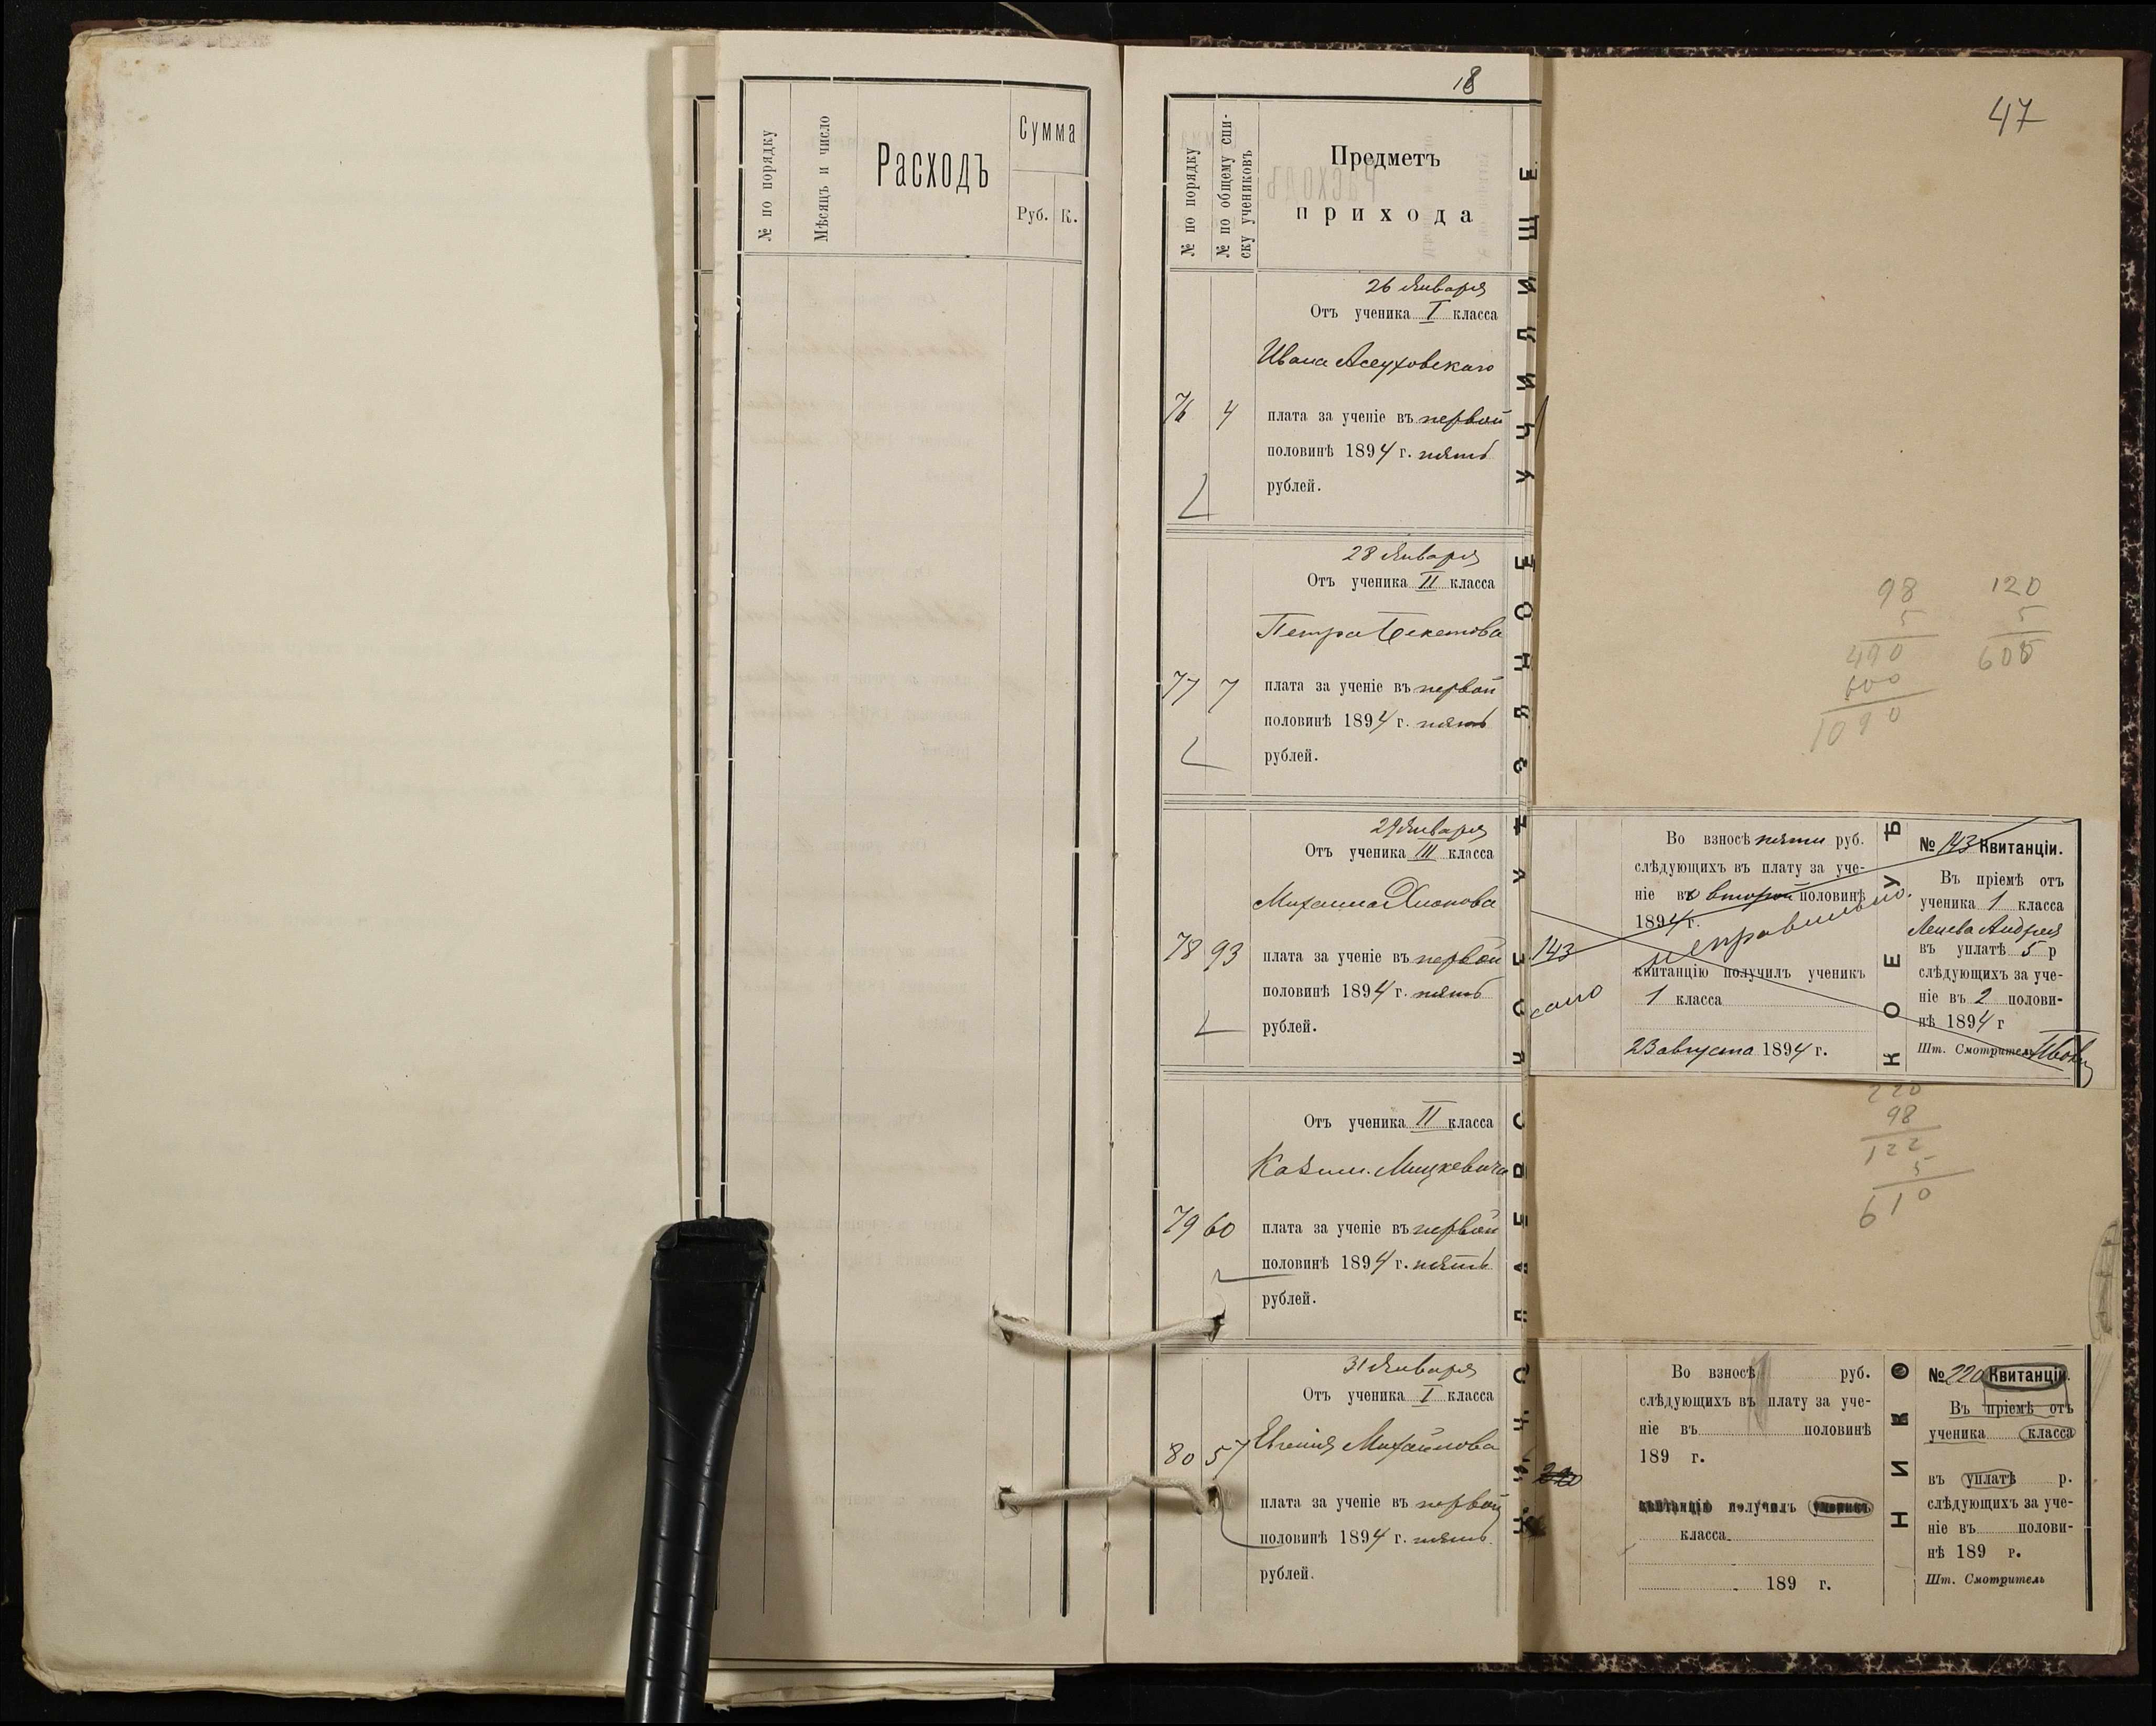 № по порядку
Мѣсяцъ и число
Расходъ
Сумма
Руб. К.
18
№ по порядку
№ по общему спи-
ску учениковъ
Предметъ
прихода
26 Января
Отъ ученика I класса
Ивана
76 4 плата за ученіе въ первой
половинѣ 1894 г. пять
рублей.
28 Января
Отъ ученика II класса
Петра Бекетова
77 7 плата за ученіе въ первой
половинѣ 1894 г. пять
рублей.
29 Января
Отъ ученика III класса
Михаила
78 93 плата за ученіе въ первой
половинѣ 1894 г. пять
рублей.
Отъ ученика II класса
Казим. Мицкевича
79 60 плата за ученіе въ первой
половинѣ 1894 г. пять
рублей.
31 Января
Отъ ученика I класса
Евгенія Михайлова
80 57 плата за ученіе въ первой
половинѣ 1894 г. пять
рублей.
УЧИЛИЩЕ
47
98
5
490
600
1090
120
5
600
143
Во взносѣ пяти руб.
слѣдующихъ въ плату за уче-
ніе во второй половинѣ
1894 г.
неправильно.
квитанцію получилъ ученикъ
1 класса
23 августа 1894 г.
КОЕ УѢ
№ 143 Квитанціи.
Въ пріемѣ отъ
ученика 1 класса
Андрея
въ уплатѣ 5 р
слѣдующихъ за уче-
ніе въ 2 полови-
нѣ 1894 г
Шт. Смотритель
220
98
122
5
610
220
Во взносѣ руб.
слѣдующихъ въ плату за уче-
ніе въ половинѣ
189 г.
квитанцію получилъ ученикъ
класса
189 г.
НИКО
№ 220 Квитанціи.
Въ пріемѣ отъ
ученика класса
въ уплатѣ р.
слѣдующихъ за уче-
ніе въ полови-
нѣ 189 г.
Шт. Смотритель